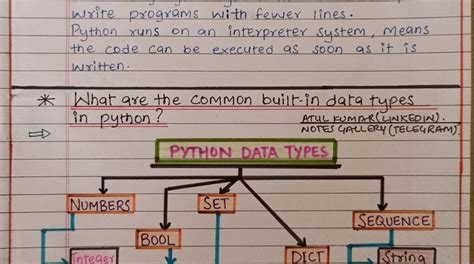 write programs with fewer lines.
Python runs on an interpreter system, means
the code can be executed as soon as it is
written.
* What are the common built-in data types
in python?
ATUL KUMAR (LINKEDIN).
NOTES GALLERY (TELEGRAM).
⇒
PYTHON DATA TYPES
NUMBERS
SET
SEQUENCE
BOOL
DICT
Integer
String